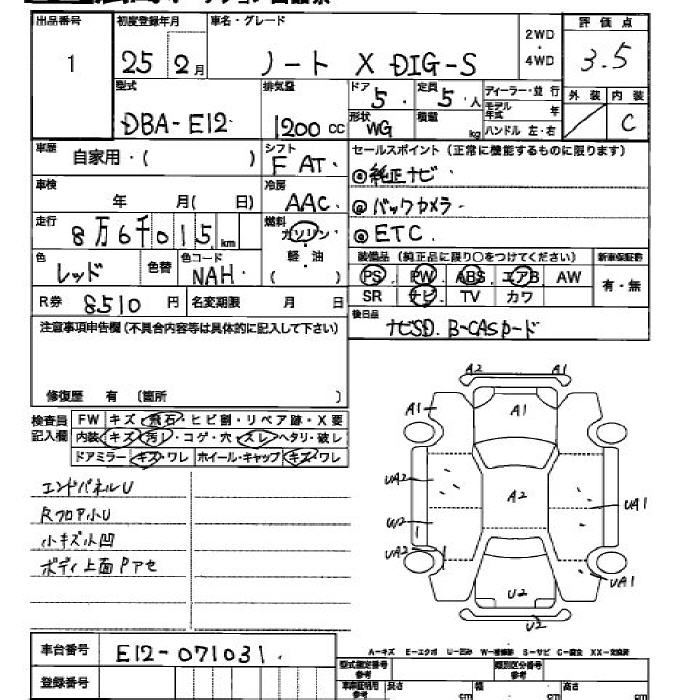 出品番号 初度登録年月 車名・グレード 2WD・4WD 評価点
1 25 2月 ノート X DIG-S 3.5
型式 排気量 ドア 5 定員 5人 ディーラー・並行 外装 内装
モデル年式 年
DBA-E12 1200cc 形状 WG 積載 kg ハンドル 左・右 C
車歴 自家用・( ) シフト F AT セールスポイント (正常に機能するものに限ります)
◎純正ナビ
車検 年 月( 日) 冷房 AAC ◎バックカメラ
走行 8万6千015km 燃料 ガソリン・軽・油 ( ) ◎ETC
装備品 (純正品に限り○をつけてください) 新車保証書
色 レッド 色替 色コード NAH PS PW ABS エアB AW 有・無
SR ナビ TV カワ
R券 8510円 名変期限 月 日 後日品 ナビSD. B-CASカード
注意事項申告欄(不具合内容等は具体的に記入して下さい)
修復歴 有 (箇所 )
検査員記入欄 FW キズ・飛石・ヒビ割・リペア跡・X要
内装 キズ・汚レ・コゲ・穴・スレ・ヘタリ・破レ
ドアミラー キズ・ワレ ホイール・キャップ キズ・ワレ
エンドパネルU
Rフロア小U
小キズ小凹
ボディ上面Pアセ
A2 A1
A1 A1
UA2 A2 UA1
W2
UA2 UA1
U2
U2
車台番号 E12-071031
A-キズ E-エクボ U-凹み W-補修跡 S-サビ C-腐食 XX-交換済
登録番号 参考 型式指定番号 類別区分番号
車庫証明用参考 長さ cm 幅 cm 高さ cm